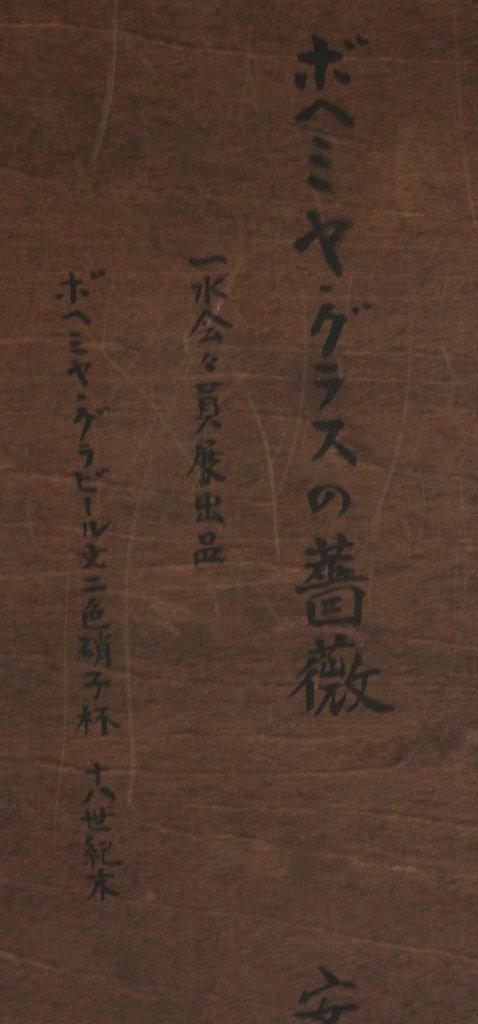 ボヘミヤ・グラスの薔薇
安
一水会々員展出品
ボヘミヤ・グラビール文二色硝子杯 十八世紀末